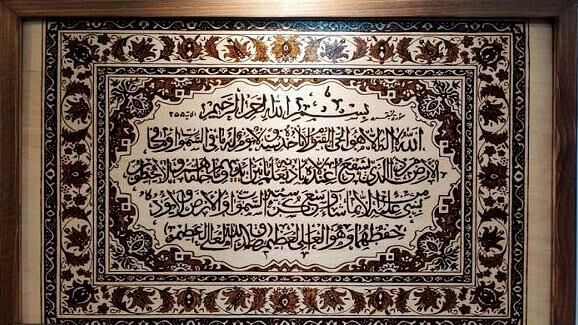 بسم الله الرحمن الرحیم
الله لا اله الا هو الحی القیوم لا تاخذه سنة و لا نوم له ما فی السموات و ما فی
الارض من ذا الذی یشفع عنده الا باذنه یعلم ما بین ایدیهم و ما خلفهم و لا یحیطون
بشیء من علمه الا بما شاء وسع کرسیه السموات و الارض و لا یوده
حفظهما و هو العلی العظیم صدق الله العلی العظیم